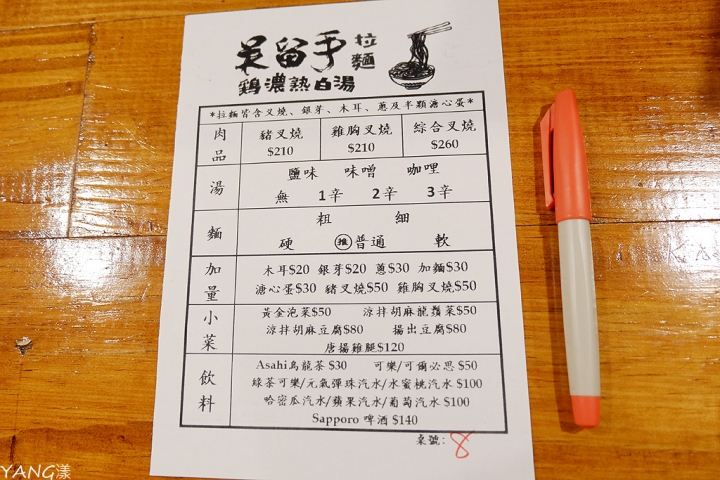 吳留手拉麵
鶏濃熟白湯
*拉麵皆含叉燒、銀芽、木耳、蔥及半顆溏心蛋*
肉品
豬叉燒 雞胸叉燒 綜合叉燒
$210 $210 $260
湯
鹽味 味噌 咖哩
無 1辛 2辛 3辛
麵
粗 細
硬 推普通 軟
加量
木耳$20 銀芽$20 蔥$30 加麵$30
溏心蛋$30 豬叉燒$50 雞胸叉燒$50
小菜
黃金泡菜$50 涼拌胡麻龍鬚菜$50
涼拌胡麻豆腐$80 揚出豆腐$80
唐揚雞腿$120
飲料
Asahi烏龍茶 $30 可樂/可爾必思 $50
綠茶可樂/元氣彈珠汽水/水蜜桃汽水 $100
哈密瓜汽水/蘋果汽水/葡萄汽水 $100
Sapporo 啤酒 $140
桌號: 8
YANG漾